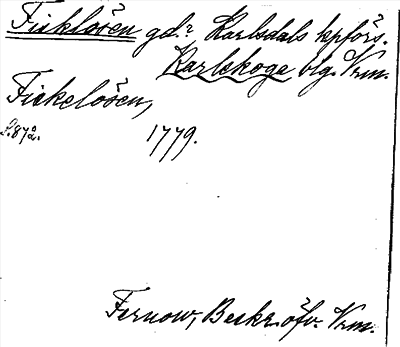 Ficklösen gd? Karlsdals kpförs.
Karlskoga blg. Vrm.
Fickelösen,
S. 872. 1779.
Fernow, Beskr. öfv. Vrm.